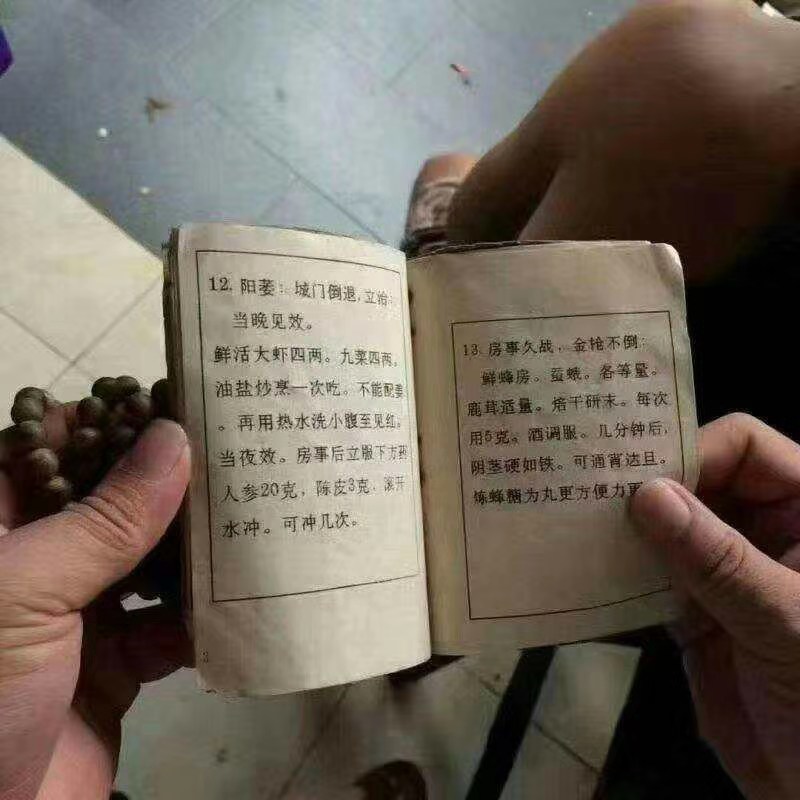 12. 阳萎：城门倒退，立治：
当晚见效。
鲜活大虾四两。九菜四两，
油盐炒烹一次吃。不能配姜
。再用热水洗小腹至见红。
当夜效。房事后立服下方药
人参20克，陈皮3克，滚开
水冲。可冲几次。
13. 房事久战，金枪不倒：
鲜蜂房。蚕蛾。各等量。
鹿茸适量。焙干研末。每次
用5克。酒调服。几分钟后，
阴茎硬如铁。可通宵达旦。
炼蜂蜜为丸更方便力更